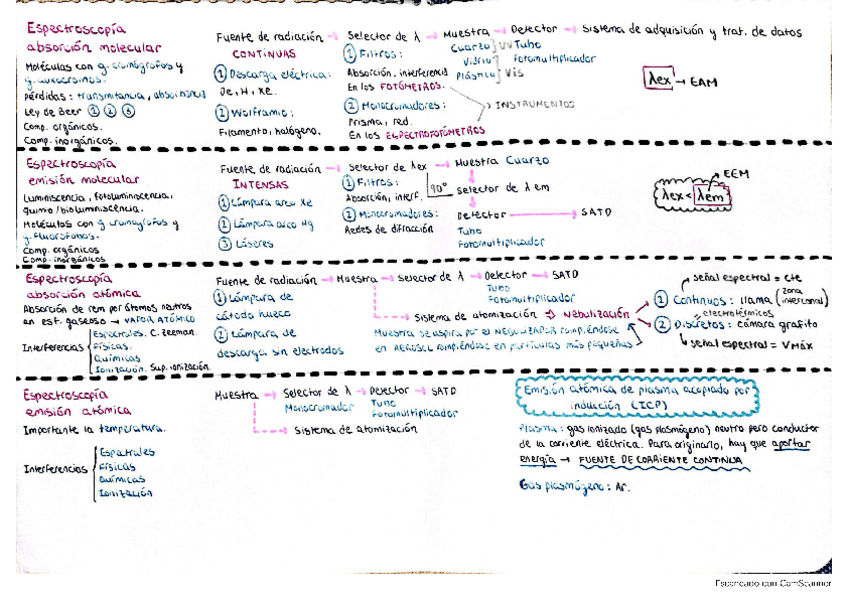 Espectroscopía
absorción molecular
Moléculas con g. cromógrafos y
g. auxocromos.
Pérdidas: transmitancia, absorbancia
Ley de Beer ① ② ③
Comp. orgánicos.
Comp. inorgánicos.
Fuente de radiación → Selector de λ → Muestra → Detector → Sistema de adquisición y trat. de datos
CONTINUAS
① Descarga eléctrica:
De, H, Xe.
② Wolframio:
Filamento, halógeno.
① Filtros:
Absorción, interferencia
En los FOTÓMETROS.
② Monocromadores:
Prisma, red.
En los ESPECTROFOTÓMETROS
INSTRUMENTOS
Cuarzo} UV
Vidrio
Plástico} Vis
Tubo
Fotomultiplicador
λex → EAM
Espectroscopía
emisión molecular
Luminiscencia, fotoluminiscencia,
quimio/bioluminiscencia.
Moléculas con g cromografos y
g. fluoróforos.
Comp. orgánicos
Comp. inorgánicos
Fuente de radiación → Selector de λex → Muestra Cuarzo
INTENSAS
① Lámpara arco Xe
② Lámpara arco Hg
③ Láseres
① Filtros:
Absorción, interf.
② Monocromadores:
Redes de difracción
90°
Selector de λ em
Detector → SATD
Tubo
Fotomultiplicador
EEM
λex < λem
Espectroscopía
absorción atómica
Absorción de rem por átomos neutros
en est. gaseoso → VAPOR ATÓMICO
Interferencias
Espectrales. C. Zeeman.
Físicas.
Químicas
Ionización. Sup. ionización.
Fuente de radiación → Muestra → Selector de λ → Detector → SATD
① Lámpara de
cátodo hueco
② Lámpara de
descarga sin electrodos
Tubo
Fotomultiplicador
Sistema de atomización → Nebulización
Muestra se aspira por el NEBULIZADOR rompiéndose
en AEROSOL rompiéndose en partículas más pequeñas
señal espectral = cte
① Continuos: llama (zona interconal)
electrotérmicos
② Discretos: cámara grafito
señal espectral = Vmáx
Espectroscopía
emisión atómica
Importante la temperatura.
Interferencias
Espectrales
Físicas
Químicas
Ionización
Muestra → Selector de λ → Detector → SATD
Monocromador
Tubo
Fotomultiplicador
Sistema de atomización
Emisión atómica de plasma acoplado por
inducción (ICP)
Plasma: gas ionizado (gas plasmógeno) neutro pero conductor
de la corriente eléctrica. Para originarlo, hay que aportar
energía → FUENTE DE CORRIENTE CONTINUA
Gas plasmógeno: Ar.
Escaneado con CamScanner